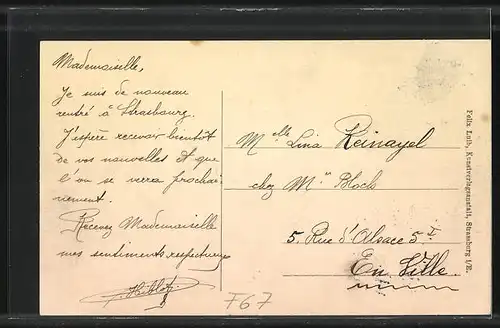 Mademoiselle,
Je suis de nouveau
rentré à Strasbourg.
J'espère recevoir bientôt
de vos nouvelles et que
l'on se verra prochai-
nement.
Recevez Mademoiselle
mes sentiments respectueux
Melle Lina Reinayel
chez Mr Bloch
5. Rue d'Alsace 5 I
En Ville.
Felix Luib, Kunstverlagsanstalt, Strassburg i/E.
F67